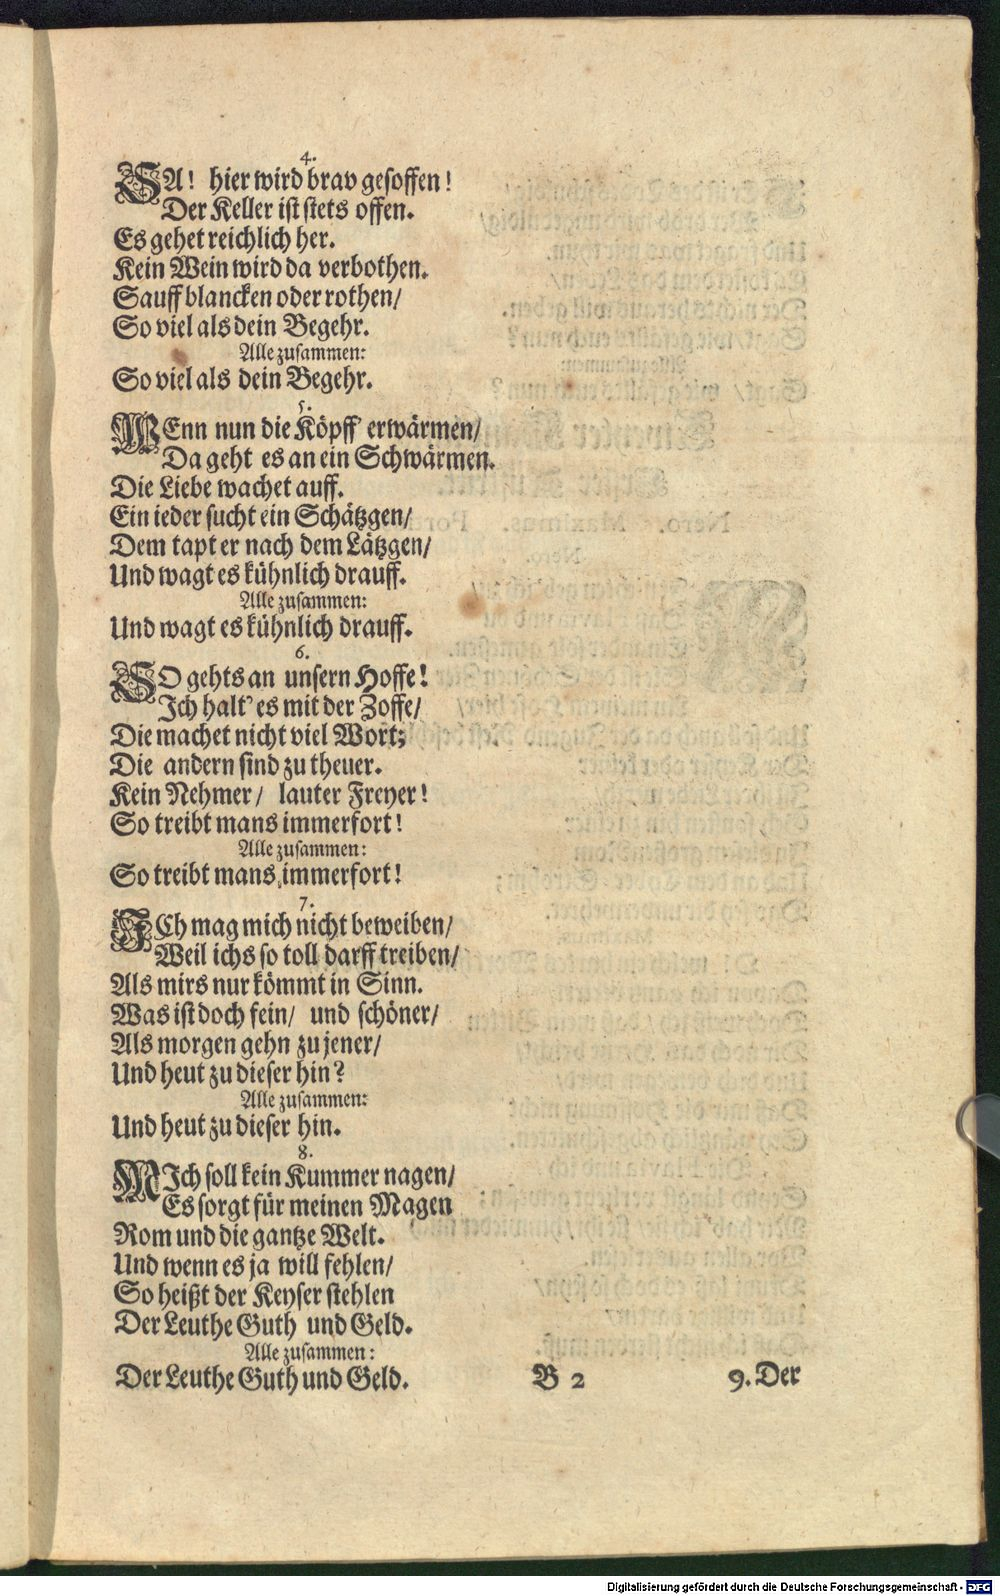 4.
SA! hier wird brav gesoffen!
Der Keller ist stets offen.
Es gehet reichlich her.
Kein Wein wird da verbothen.
Sauff blancken oder rothen/
So viel als dein Begehr.
Alle zusammen:
So viel als dein Begehr.
5.
WEnn nun die Köpff' erwärmen/
Da geht es an ein Schwärmen.
Die Liebe wachet auff.
Ein ieder sucht ein Schätzgen/
Dem tapt er nach dem Lätzgen/
Und wagt es kühnlich drauff.
Alle zusammen:
Und wagt es kühnlich drauff.
6.
SO gehts an unsern Hoffe!
Ich halt' es mit der Zoffe/
Die machet nicht viel Wort;
Die andern sind zu theuer.
Kein Nehmer/ lauter Freyer!
So treibt mans immerfort!
Alle zusammen:
So treibt mans immerfort!
7.
ICh mag mich nicht beweiben/
Weil ichs so toll darff treiben/
Als mirs nur kömmt in Sinn.
Was ist doch fein/ und schöner/
Als morgen gehn zu jener/
Und heut zu dieser hin?
Alle zusammen:
Und heut zu dieser hin.
8.
MIch soll kein Kummer nagen/
Es sorgt für meinen Magen
Rom und die gantze Welt.
Und wenn es ja will fehlen/
So heißt der Keyser stehlen
Der Leuthe Guth und Geld.
Alle zusammen:
Der Leuthe Guth und Geld.
B 2
9. Der
Digitalisierung gefördert durch die Deutsche Forschungsgemeinschaft - DFG